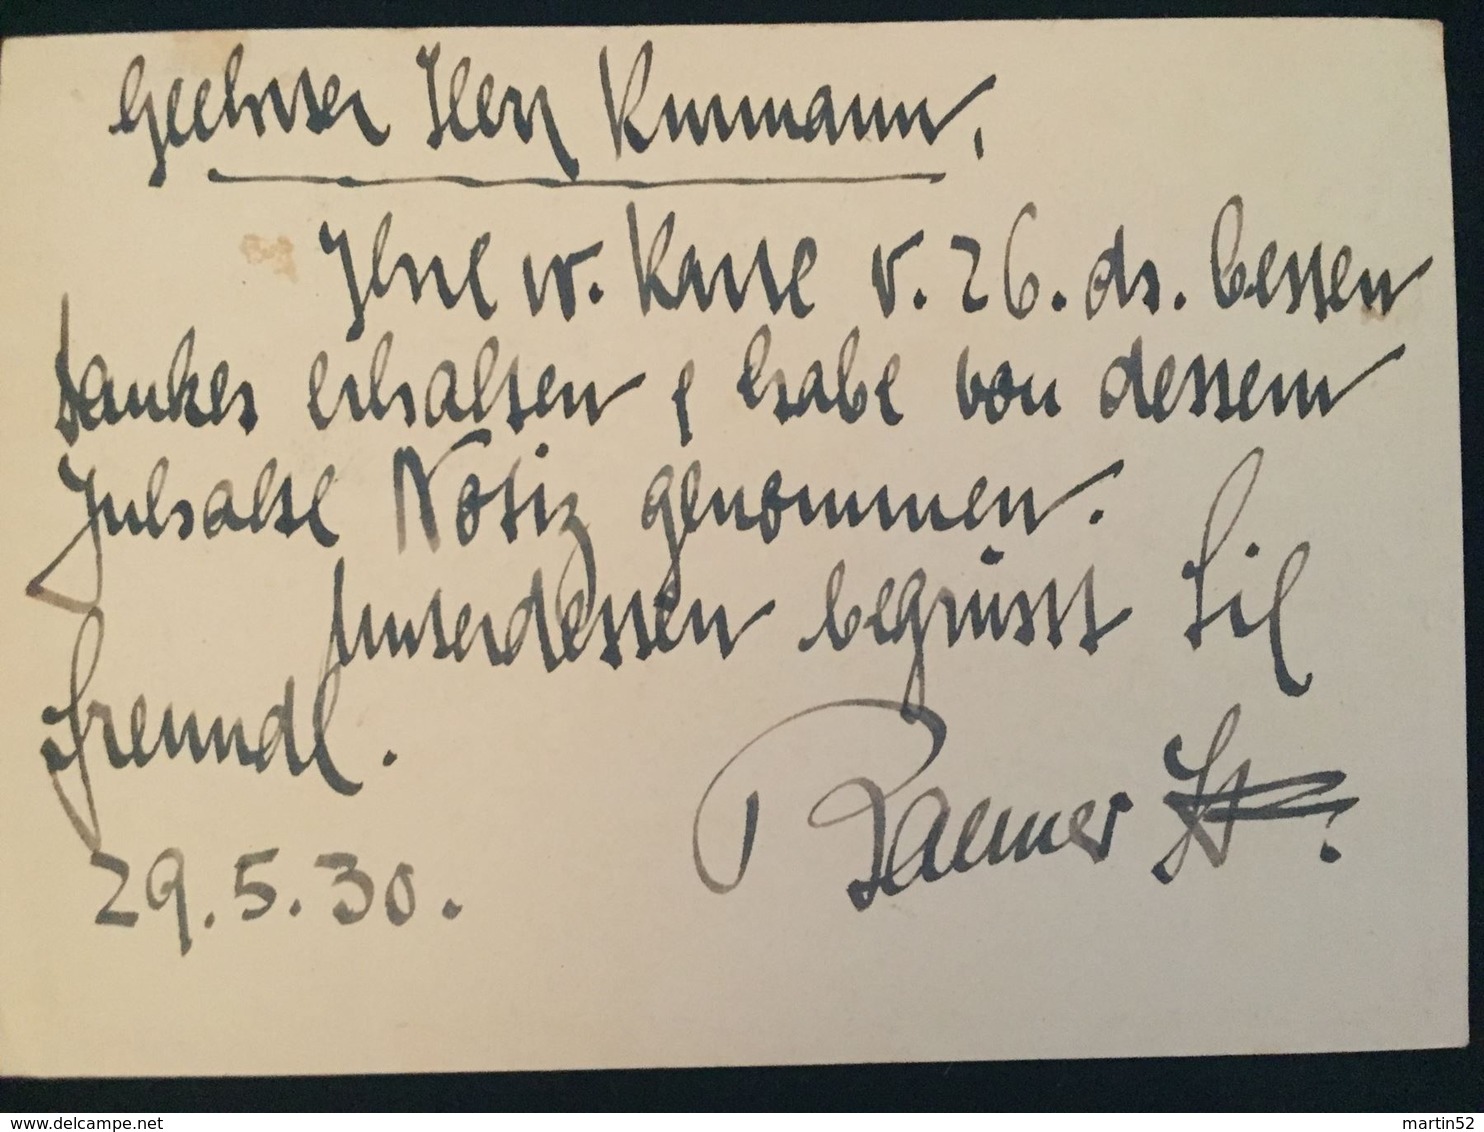 Geehrter Herr Kurmann,
Ihre w. Karte v. 26. ds. besten
Dankes erhalten & habe von dessem
Inhalte Notiz genommen.
Unterdessen begrüsst Sie
freundl.
29.5.30.
delcampe.net
martin52